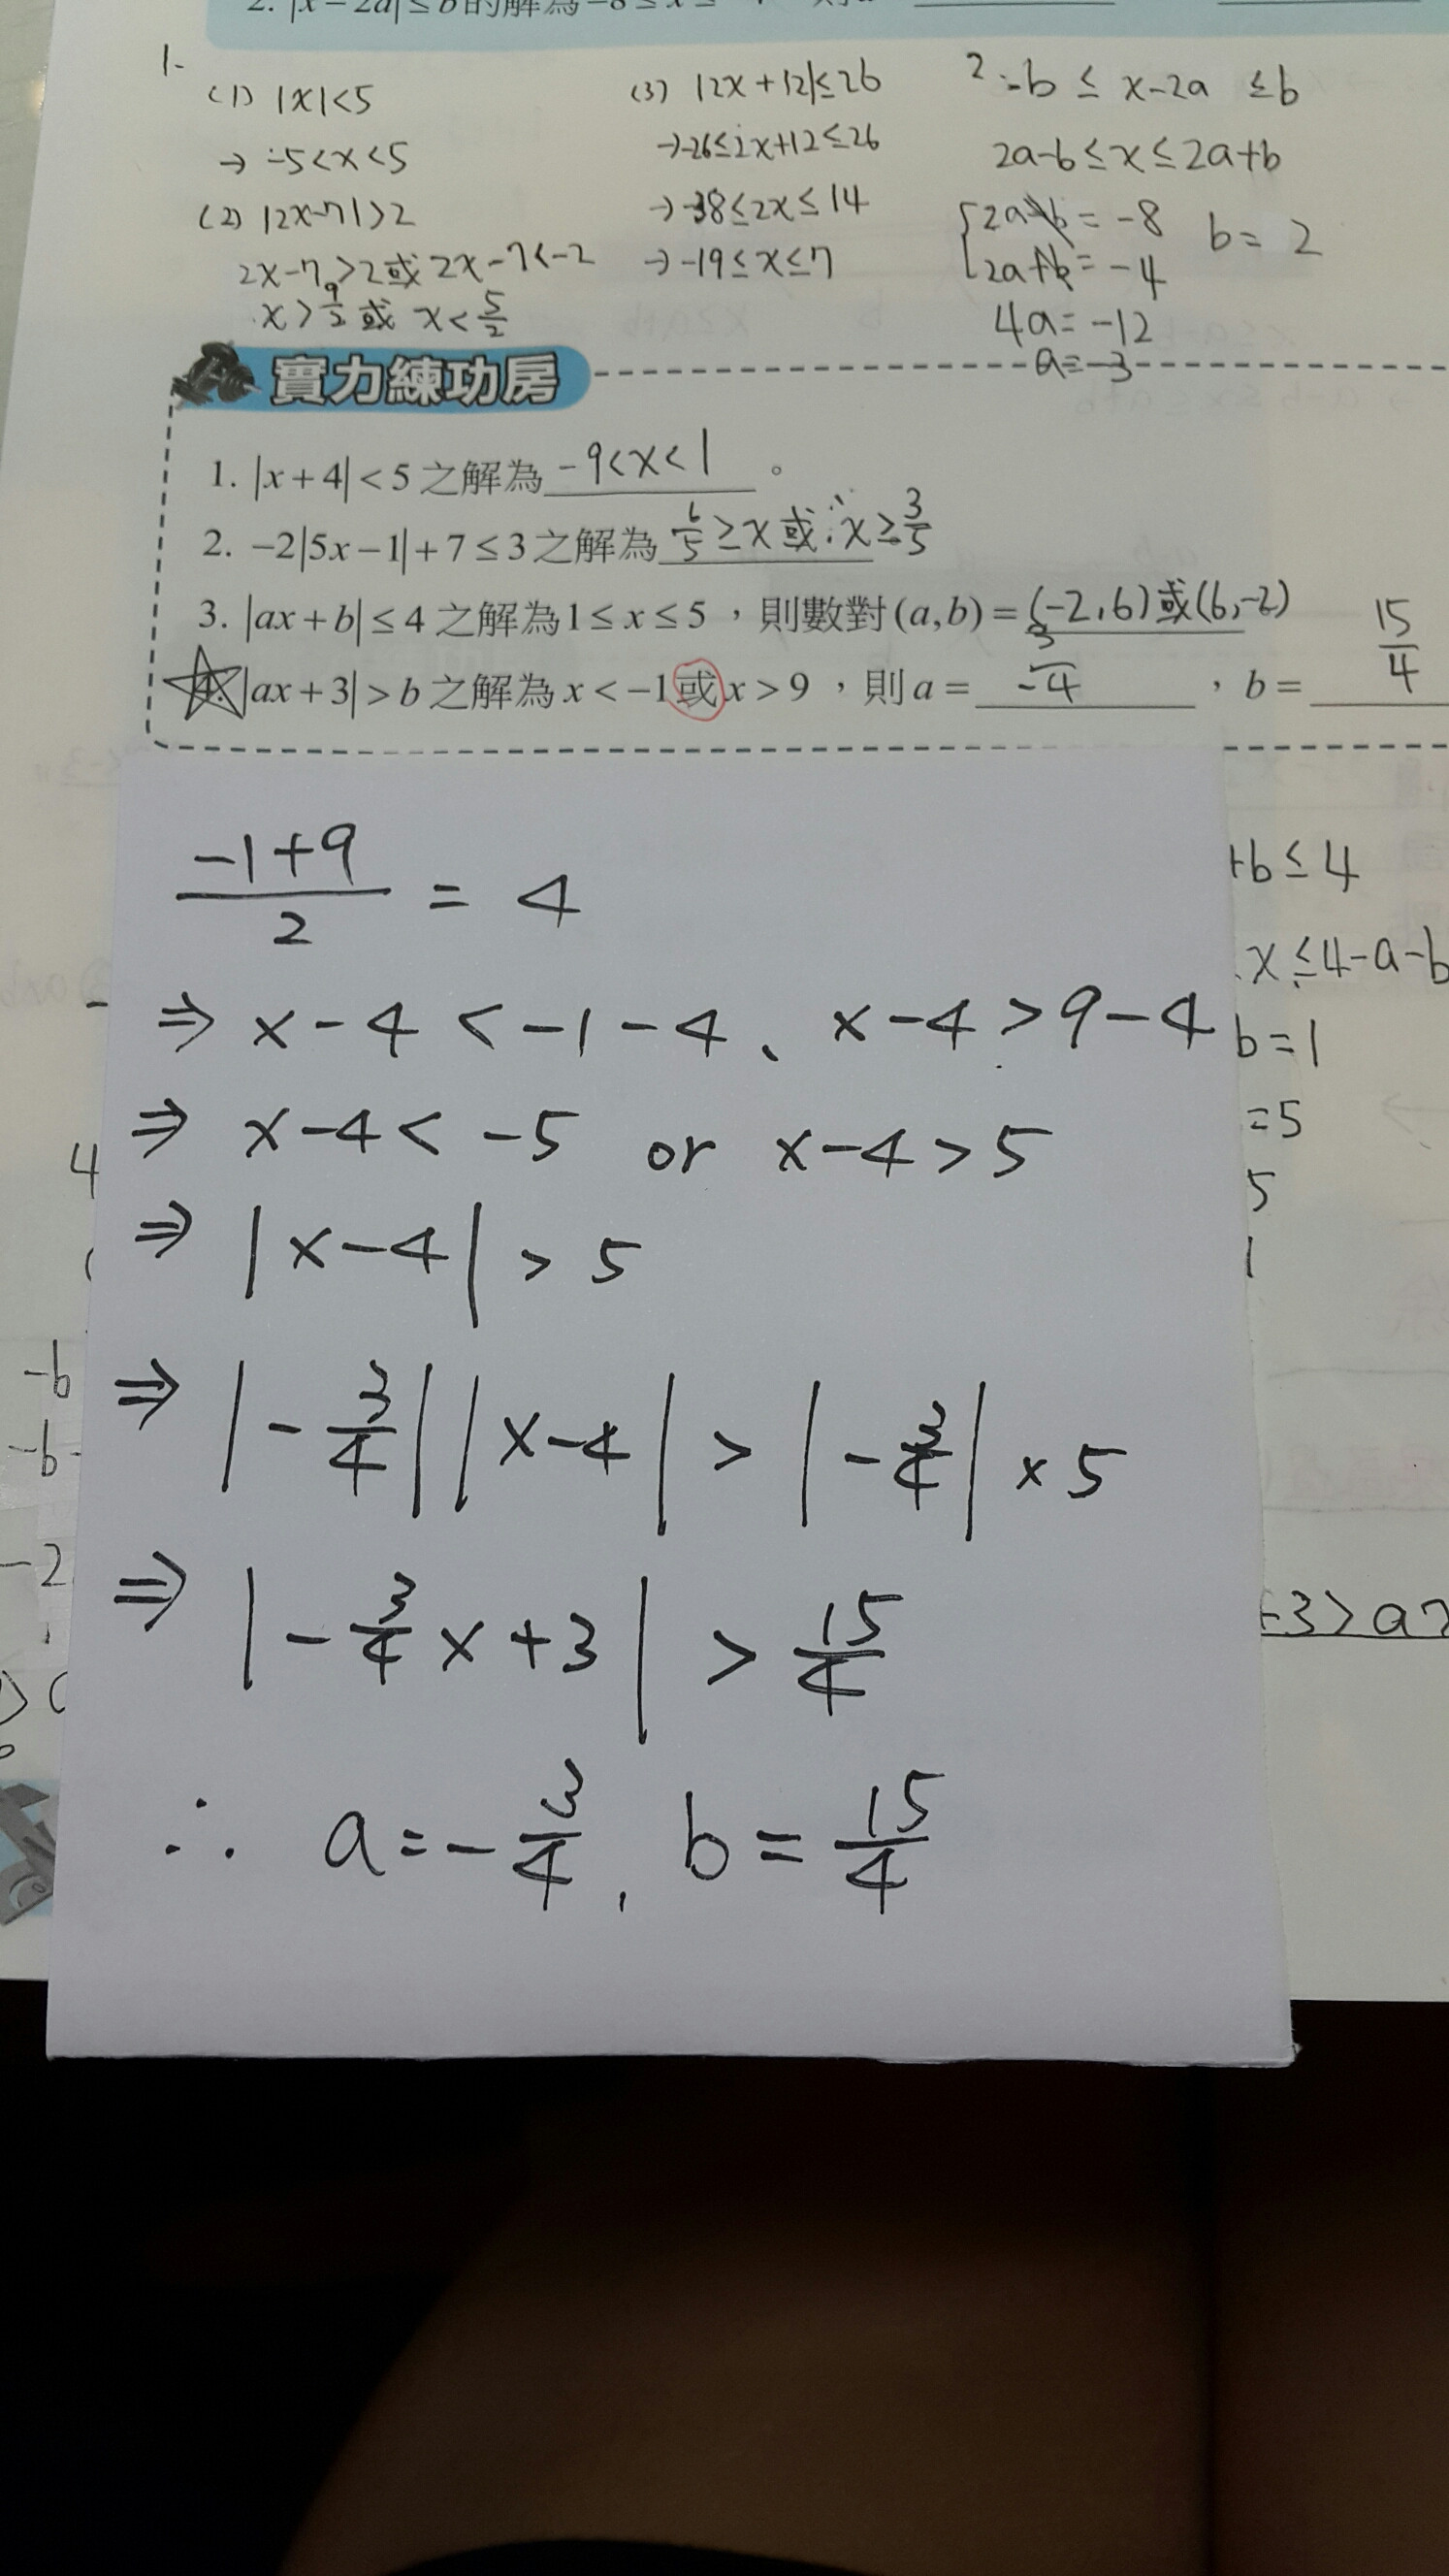 2. |x－2a| ≤ b 的解為 －8 ≤ x ≤
1.
(1) |x|<5
→ -5<x<5
(2) |2x-7|>2
2x-7>2或 2x-7<-2
x>9/2 或 x<5/2
(3) |2x+12|≤26
→-26≤2x+12≤26
→-38≤2x≤14
→-19≤x≤7
2. -b ≤ x-2a ≤b
2a-b≤x≤2a+b
2a-b=-8
2a+b=-4
b=2
4a=-12
a=-3
實力練功房
1. |x+4|<5之解為 -9<x<1 。
2. -2|5x-1|+7≤3之解為 6/5≥x或x≥3/5
3. |ax+b|≤4之解為1≤x≤5，則數對(a,b)=(-2,6)或(6,-2)
|ax+3|>b之解為x<-1或x>9，則a= -3/4 ，b= 15/4
(-1+9)/2 = 4
⇒ x-4<-1-4、x-4>9-4
⇒ x-4<-5 or x-4>5
⇒ |x-4|>5
⇒ |-3/4||x-4|>|-3/4|×5
⇒ |-3/4x+3|>15/4
∴ a=-3/4, b=15/4
+b≤4
x≤4-a-b
b=1
=5
5
1
4
-b
-b-
-2
+3>ax